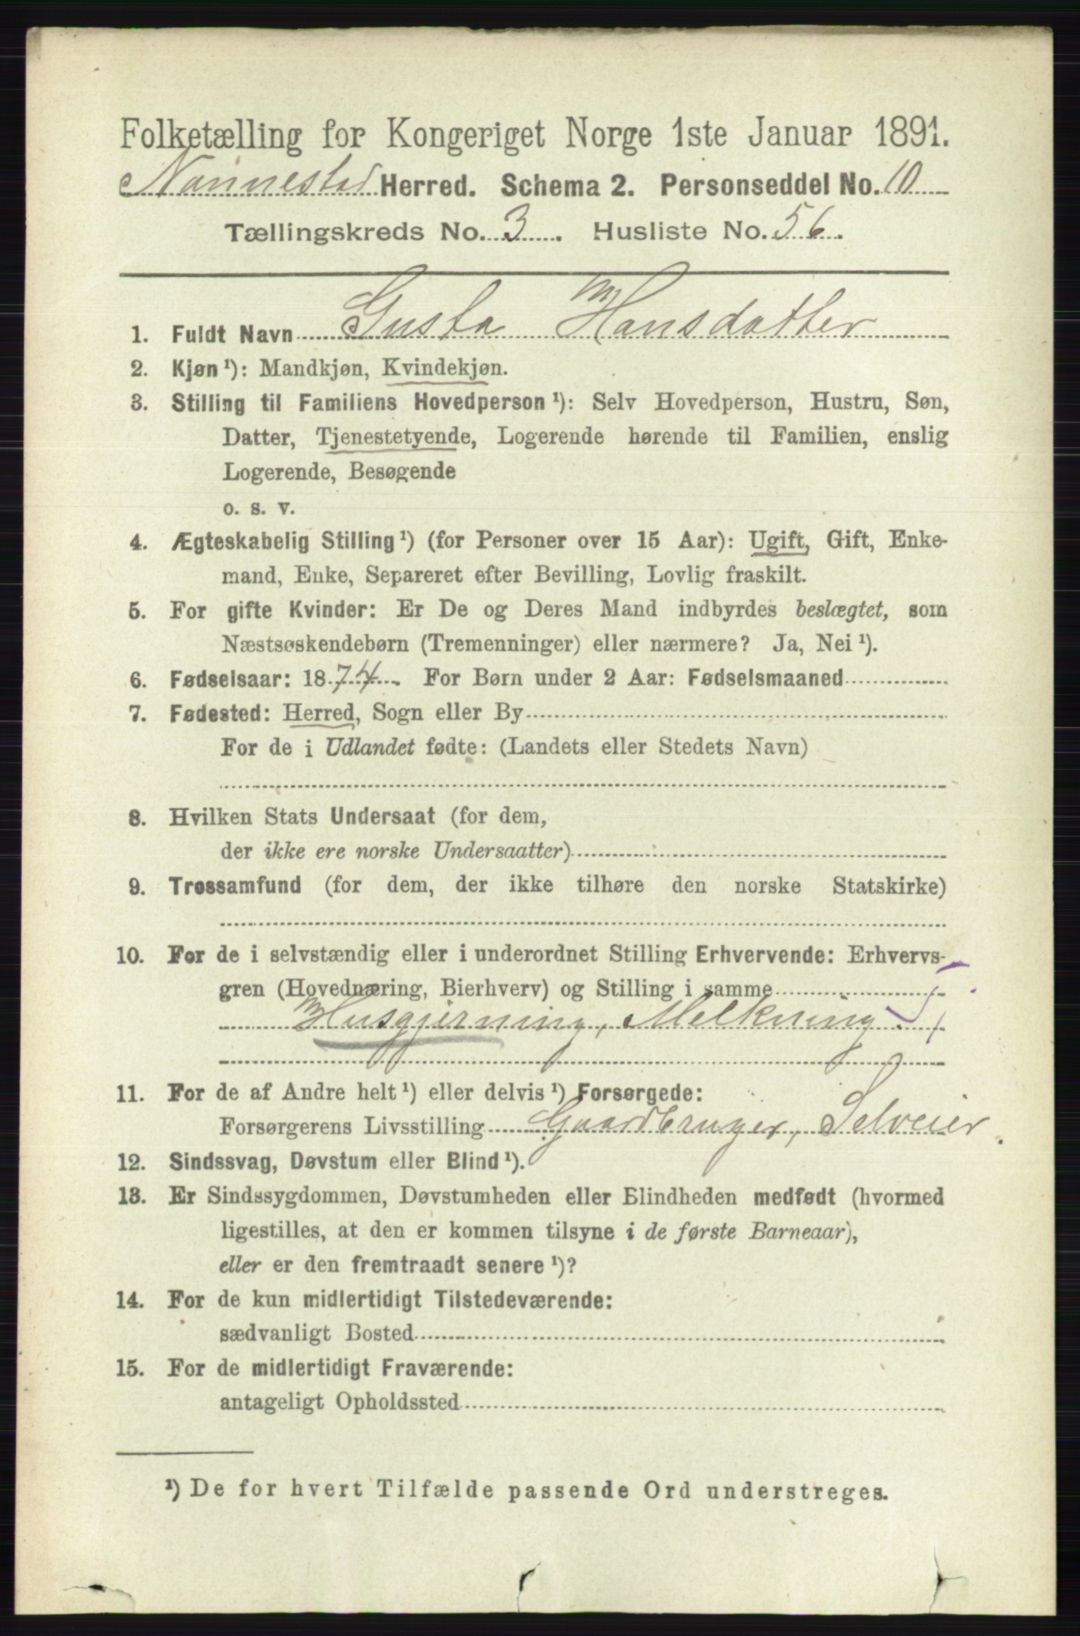 Folketælling for Kongeriget Norge 1ste Januar 1891.
Nannestad Herred. Schema 2. Personseddel No. 10
Tællingskreds No. 3. Husliste No. 56.
1. Fuldt Navn Gusta Hansdatter
2. Kjøn ¹): Mandkjøn, Kvindekjøn.
3. Stilling til Familiens Hovedperson ¹): Selv Hovedperson, Hustru, Søn,
Datter, Tjenestetyende, Logerende hørende til Familien, enslig
Logerende, Besøgende
o. s. v.
4. Ægteskabelig Stilling ¹) (for Personer over 15 Aar): Ugift, Gift, Enke-
mand, Enke, Separeret efter Bevilling, Lovlig fraskilt.
5. For gifte Kvinder: Er De og Deres Mand indbyrdes beslægtet, som
Næstsøskendebørn (Tremenninger) eller nærmere? Ja, Nei ¹).
6. Fødselsaar: 1874. For Børn under 2 Aar: Fødselsmaaned
7. Fødested: Herred, Sogn eller By
For de i Udlandet fødte: (Landets eller Stedets Navn)
8. Hvilken Stats Undersaat (for dem,
der ikke ere norske Undersaatter)
9. Trossamfund (for dem, der ikke tilhøre den norske Statskirke)
10. For de i selvstændig eller i underordnet Stilling Erhvervende: Erhvervs-
gren (Hovednæring, Bierhverv) og Stilling i samme
Husgjerning, Melkning
11. For de af Andre helt ¹) eller delvis ¹) Forsørgede:
Forsørgerens Livsstilling Gaardbruger, Selveier.
12. Sindssvag, Døvstum eller Blind ¹).
13. Er Sindssygdommen, Døvstumheden eller Blindheden medfødt (hvormed
ligestilles, at den er kommen tilsyne i de første Barneaar),
eller er den fremtraadt senere ¹)?
14. For de kun midlertidigt Tilstedeværende:
sædvanligt Bosted
15. For de midlertidigt Fraværende:
antageligt Opholdssted
¹) De for hvert Tilfælde passende Ord understreges.